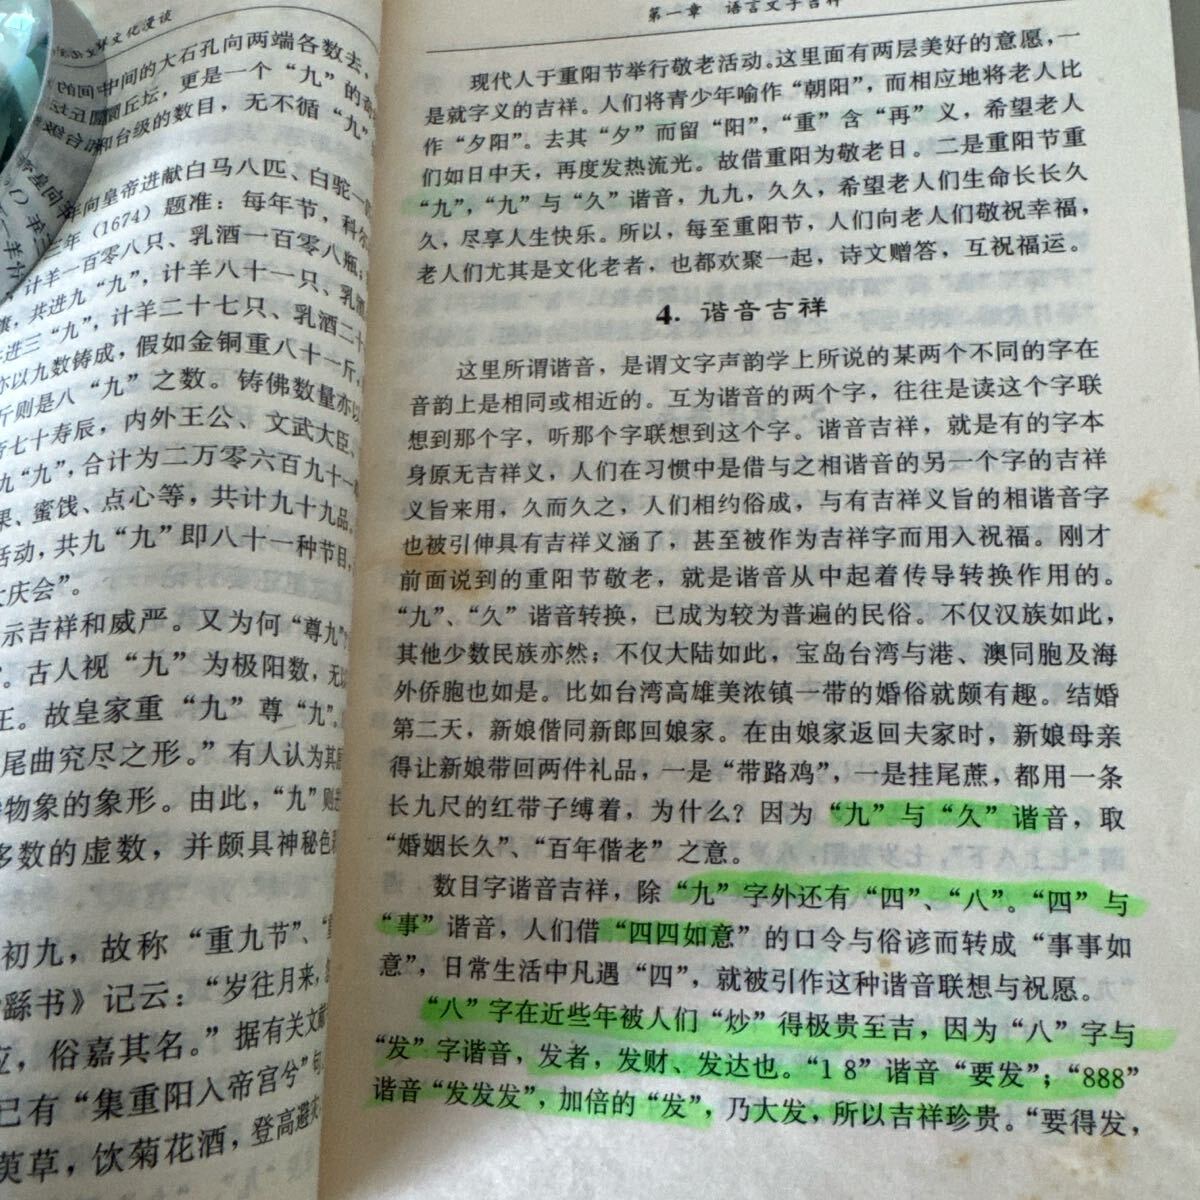 文化漫谈
中间的大石孔向两端各数去，
圜丘坛，更是一个“九”的
和台级的数目，无不循“九”
年向皇帝进献白马八匹、白驼一
年（1674）题准：每年节，科尔
计羊一百零八只、乳酒一百零八瓶；
共进九“九”，计羊八十一只、乳酒
进三“九”，计羊二十七只、乳酒二十
亦以九数铸成，假如金铜重八十一斤，
斤则是八“九”之数。铸佛数量亦以
七十寿辰，内外王公、文武大臣、
九“九”，合计为二万零六百九十一
果、蜜饯、点心等，共计九十九品。
活动，共九“九”即八十一种节目，
大庆会”。
示吉祥和威严。又为何“尊九”
”。古人视“九”为极阳数，无以
王。故皇家重“九”尊“九”。
尾曲究尽之形。”有人认为其尾
物象的象形。由此，“九”则
多数的虚数，并颇具神秘色
初九，故称“重九节”、
繇书》记云：“岁往月来，
应，俗嘉其名。”据有关文献
已有“集重阳入帝宫兮”句，
萸草，饮菊花酒，登高避灾
第一章 语言文字吉祥
现代人于重阳节举行敬老活动。这里面有两层美好的意愿，一
是就字义的吉祥。人们将青少年喻作“朝阳”，而相应地将老人比
作“夕阳”。去其“夕”而留“阳”，“重”含“再”义，希望老人
们如日中天，再度发热流光。故借重阳为敬老日。二是重阳节重
“九”，“九”与“久”谐音，九九，久久，希望老人们生命长长久
久，尽享人生快乐。所以，每至重阳节，人们向老人们敬祝幸福，
老人们尤其是文化老者，也都欢聚一起，诗文赠答，互祝福运。
4. 谐音吉祥
这里所谓谐音，是谓文字声韵学上所说的某两个不同的字在
音韵上是相同或相近的。互为谐音的两个字，往往是读这个字联
想到那个字，听那个字联想到这个字。谐音吉祥，就是有的字本
身原无吉祥义，人们在习惯中是借与之相谐音的另一个字的吉祥
义旨来用，久而久之，人们相约俗成，与有吉祥义旨的相谐音字
也被引伸具有吉祥义涵了，甚至被作为吉祥字而用入祝福。刚才
前面说到的重阳节敬老，就是谐音从中起着传导转换作用的。
“九”、“久”谐音转换，已成为较为普遍的民俗。不仅汉族如此，
其他少数民族亦然；不仅大陆如此，宝岛台湾与港、澳同胞及海
外侨胞也如是。比如台湾高雄美浓镇一带的婚俗就颇有趣。结婚
第二天，新娘偕同新郎回娘家。在由娘家返回夫家时，新娘母亲
得让新娘带回两件礼品，一是“带路鸡”，一是挂尾蔗，都用一条
长九尺的红带子缚着，为什么？因为“九”与“久”谐音，取
“婚姻长久”、“百年偕老”之意。
数目字谐音吉祥，除“九”字外还有“四”、“八”。“四”与
“事”谐音，人们借“四四如意”的口令与俗谚而转成“事事如
意”，日常生活中凡遇“四”，就被引作这种谐音联想与祝愿。
“八”字在近些年被人们“炒”得极贵至吉，因为“八”字与
“发”字谐音，发者，发财、发达也。“18”谐音“要发”；“888”
谐音“发发发”，加倍的“发”，乃大发，所以吉祥珍贵。“要得发，